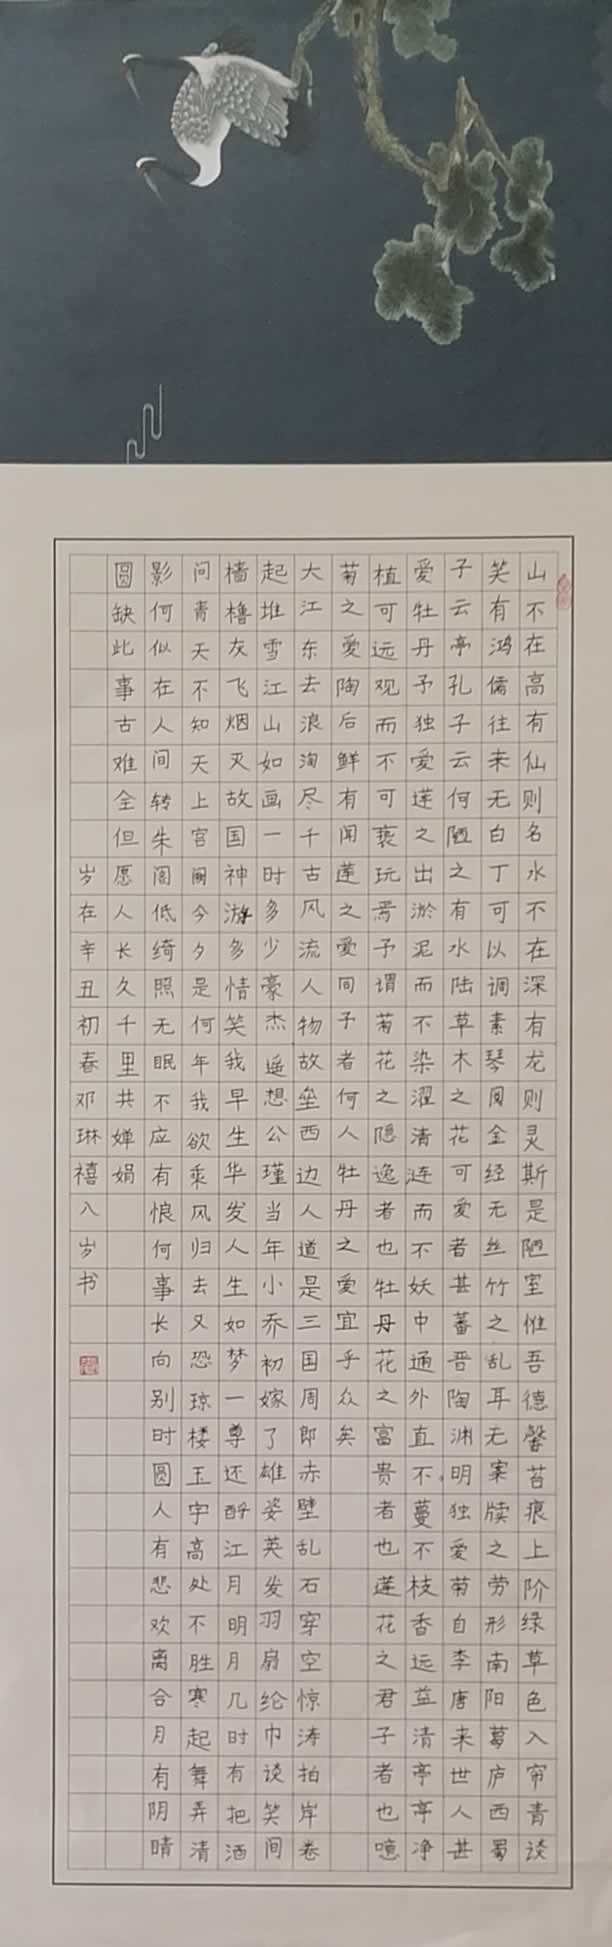 山不在高有仙则名水不在深有龙则灵斯是陋室惟吾德馨苔痕上阶绿草色入帘青谈
笑有鸿儒往来无白丁可以调素琴阅金经无丝竹之乱耳无案牍之劳形南阳葛庐西蜀
子云亭孔子云何陋之有水陆草木之花可爱者甚蕃晋陶渊明独爱菊自李唐来世人甚
爱牡丹予独爱莲之出淤泥而不染濯清涟而不妖中通外直不蔓不枝香远益清亭亭净
植可远观而不可亵玩焉予谓菊花之隐逸者也牡丹花之富贵者也莲花之君子者也噫
菊之爱陶后鲜有闻莲之爱同予者何人牡丹之爱宜乎众矣
大江东去浪淘尽千古风流人物故垒西边人道是三国周郎赤壁乱石穿空惊涛拍岸卷
起堆雪江山如画一时多少豪杰遥想公瑾当年小乔初嫁了雄姿英发羽扇纶巾谈笑间
樯橹灰飞烟灭故国神游多情笑我早生华发人生如梦一尊还酹江月明月几时有把酒
问青天不知天上宫阙今夕是何年我欲乘风归去又恐琼楼玉宇高处不胜寒起舞弄清
影何似在人间转朱阁低绮照无眠不应有恨何事长向别时圆人有悲欢离合月有阴晴
圆缺此事古难全但愿人长久千里共婵娟
岁在辛丑初春邓琳禧八岁书